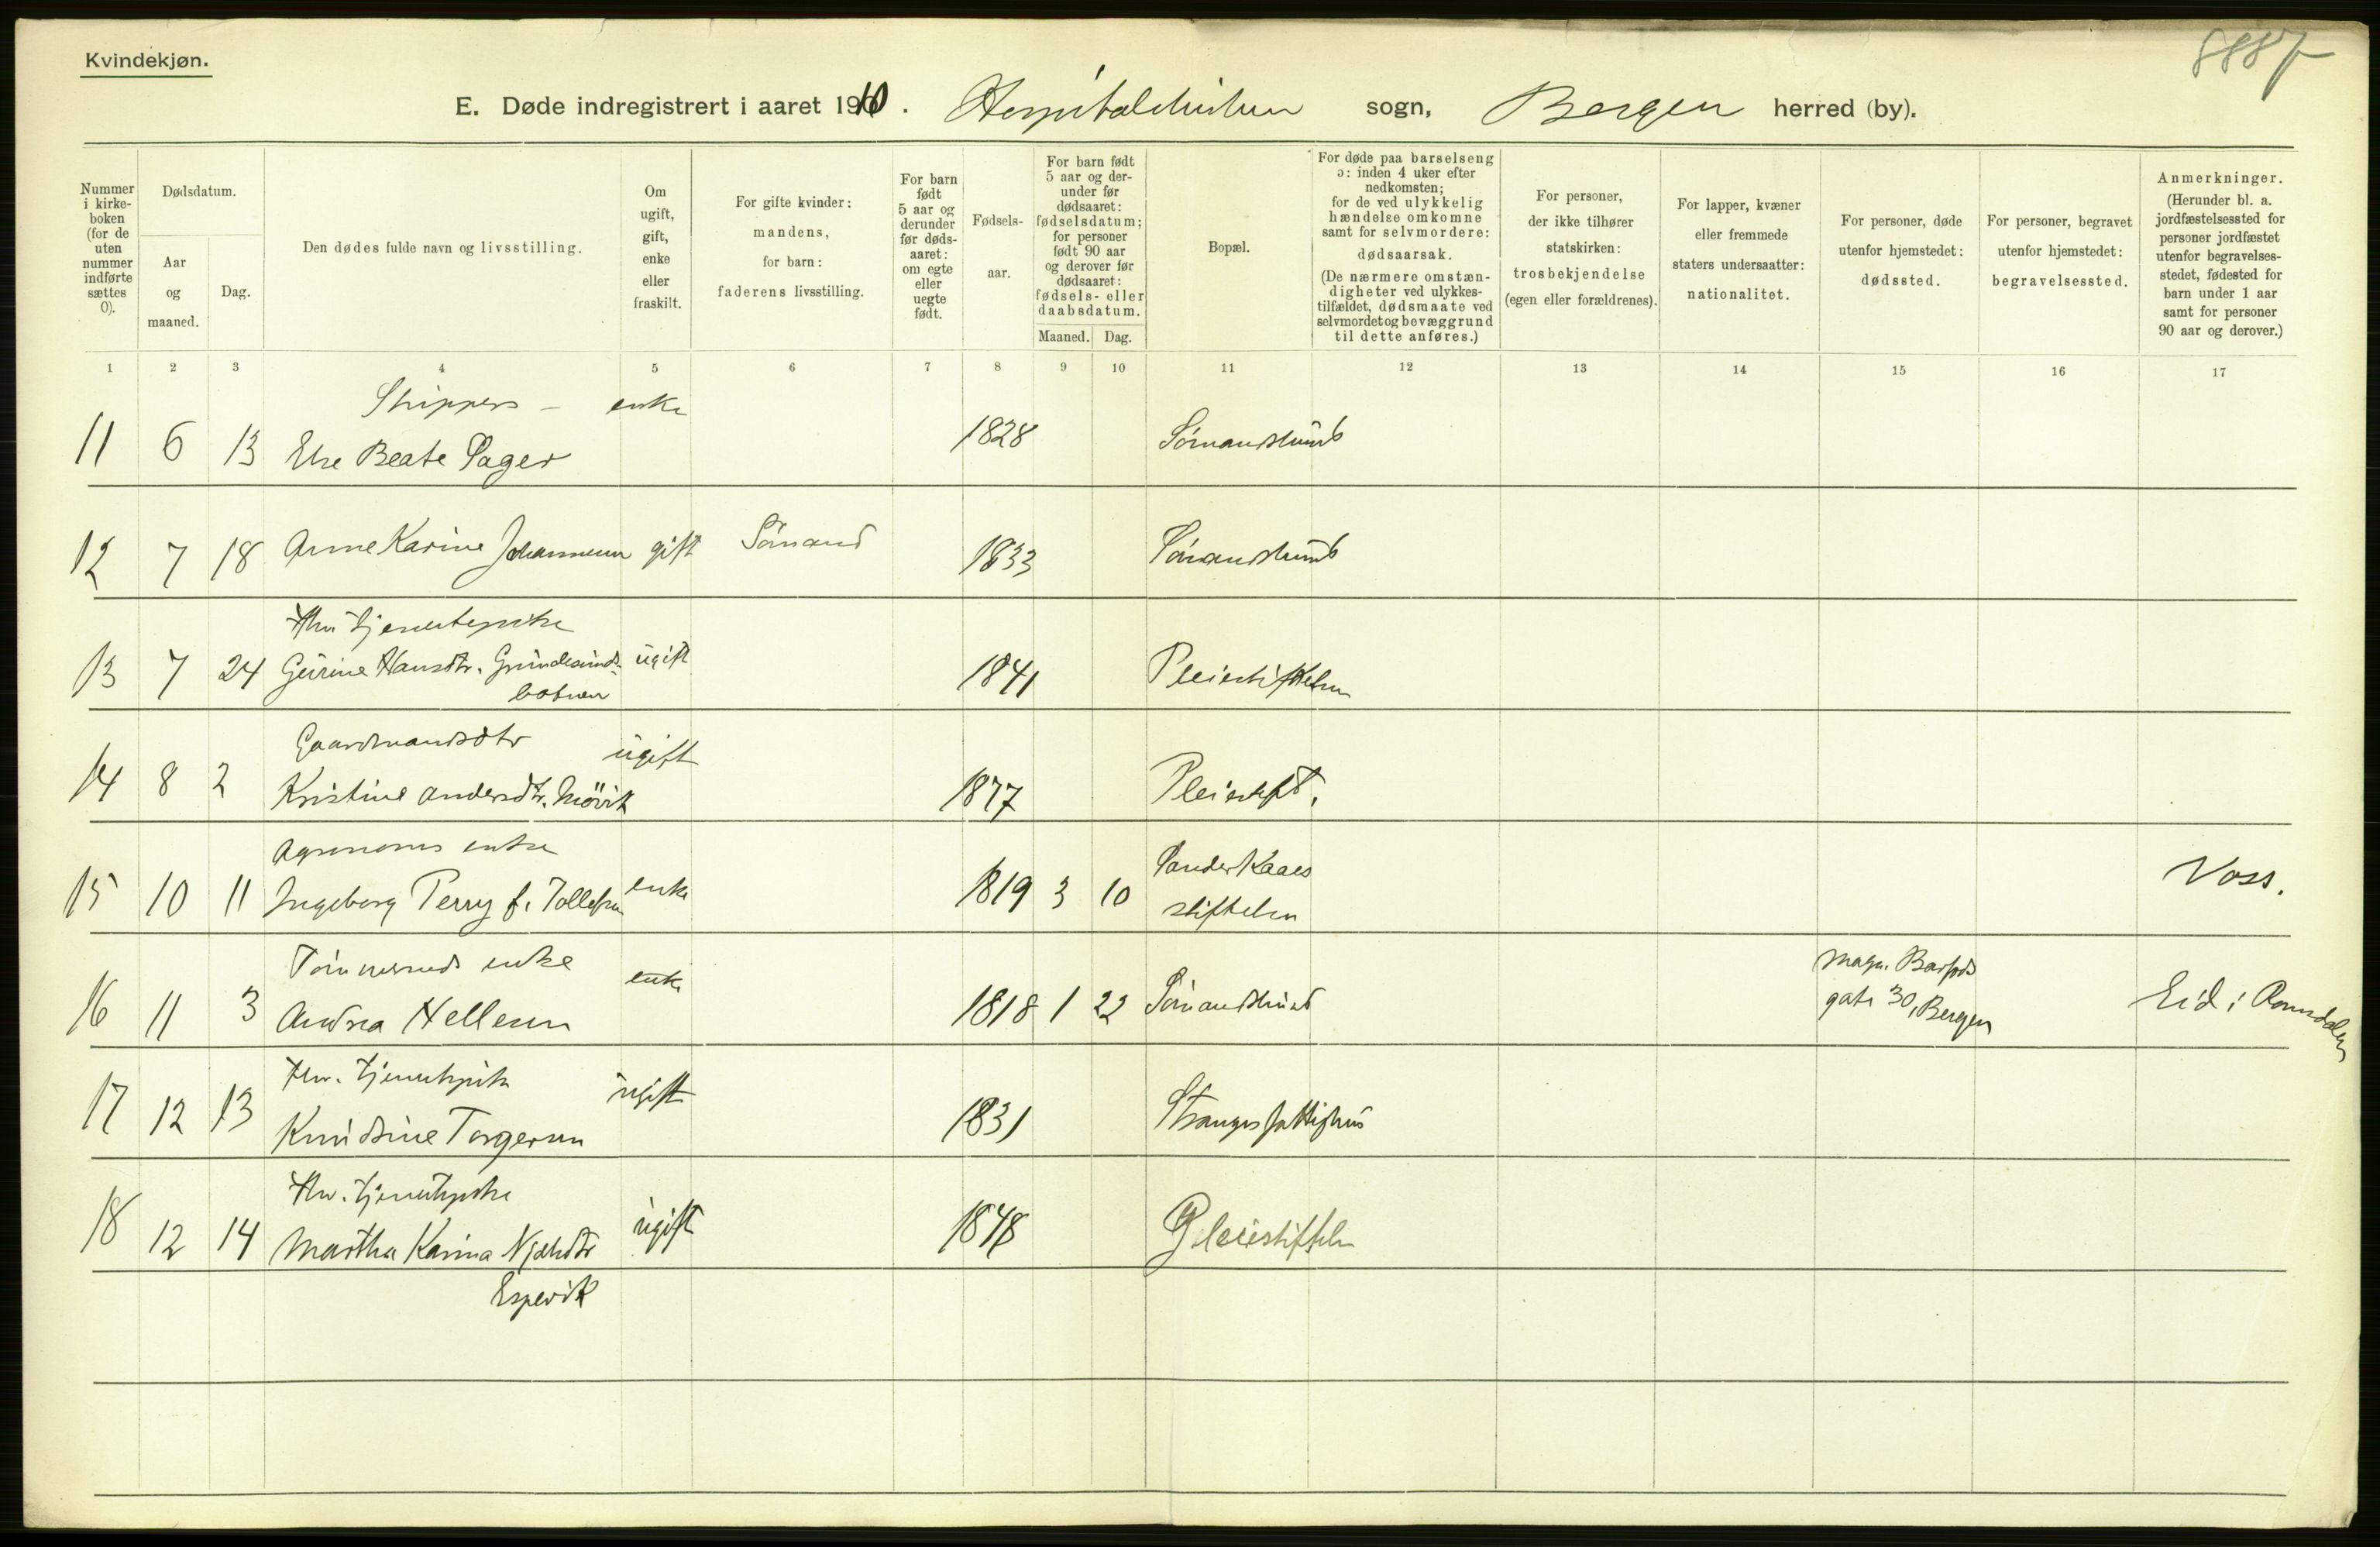 Kvindekjøn.
8887
E. Døde indregistrert i aaret 1910. Hospitalskirken sogn, Bergen herred (by).
Nummer i kirke-boken (for de uten nummer indførte sættes 0).
Dødsdatum.
Aar og maaned.
Dag.
Den dødes fulde navn og livsstilling.
Om ugift, gift, enke eller fraskilt.
For gifte kvinder: mandens, for barn: faderens livsstilling.
For barn født 5 aar og derunder før døds-aaret: om egte eller uegte født.
Fødsels-aar.
For barn født 5 aar og der-under før dødsaaret: fødselsdatum; for personer født 90 aar og derover før dødsaaret: fødsels- eller daabsdatum.
Maaned. Dag.
Bopæl.
For døde paa barselseng ɔ: inden 4 uker efter nedkomsten; for de ved ulykkelig hændelse omkomne samt for selvmordere: dødsaarsak. (De nærmere omstæn-digheter ved ulykkes-tilfældet, dødsmaate ved selvmordet og bevæggrund til dette anføres.)
For personer, der ikke tilhører statskirken: trosbekjendelse (egen eller forældrenes).
For lapper, kvæner eller fremmede staters undersaatter: nationalitet.
For personer, døde utenfor hjemstedet: dødssted.
For personer, begravet utenfor hjemstedet: begravelsessted.
Anmerkninger. (Herunder bl. a. jordfæstelsessted for personer jordfæstet utenfor begravelses-stedet, fødested for barn under 1 aar samt for personer 90 aar og derover.)
1 2 3 4 5 6 7 8 9 10 11 12 13 14 15 16 17
Skippers – enke
11 6 13 Else Beate Sager 1828
12 7 18 Anne Karine Johannesen gift Sömand 1833
Fhv. tjenestepike
13 7 24 Gurine Hansdtr. Grindesunds- ugift 1841 Pleiestiftelsen
botnen
Gaardmandsdtr ugift
14 8 2 Kristine Andersdtr. Mövik 1877 Pleiestift.
Agronoms enke Sander Kaaes
15 10 11 Ingeborg Perry f. Tollefsen enke 1819 3 10 stiftelse Voss.
Tömmermds enke enke Magn. Barfods
16 11 3 Andrea Hellesen 1818 1 22 gate 30, Bergen Eid i Romsdalen
Fhv. tjenestepike ugift
17 12 13 Knudsine Torgersen 1831 Stranges fattighus
Fhv. tjenestepike
18 12 14 Martha Karina Njælsdtr ugift 1848 Pleiestiftelse
Espevik